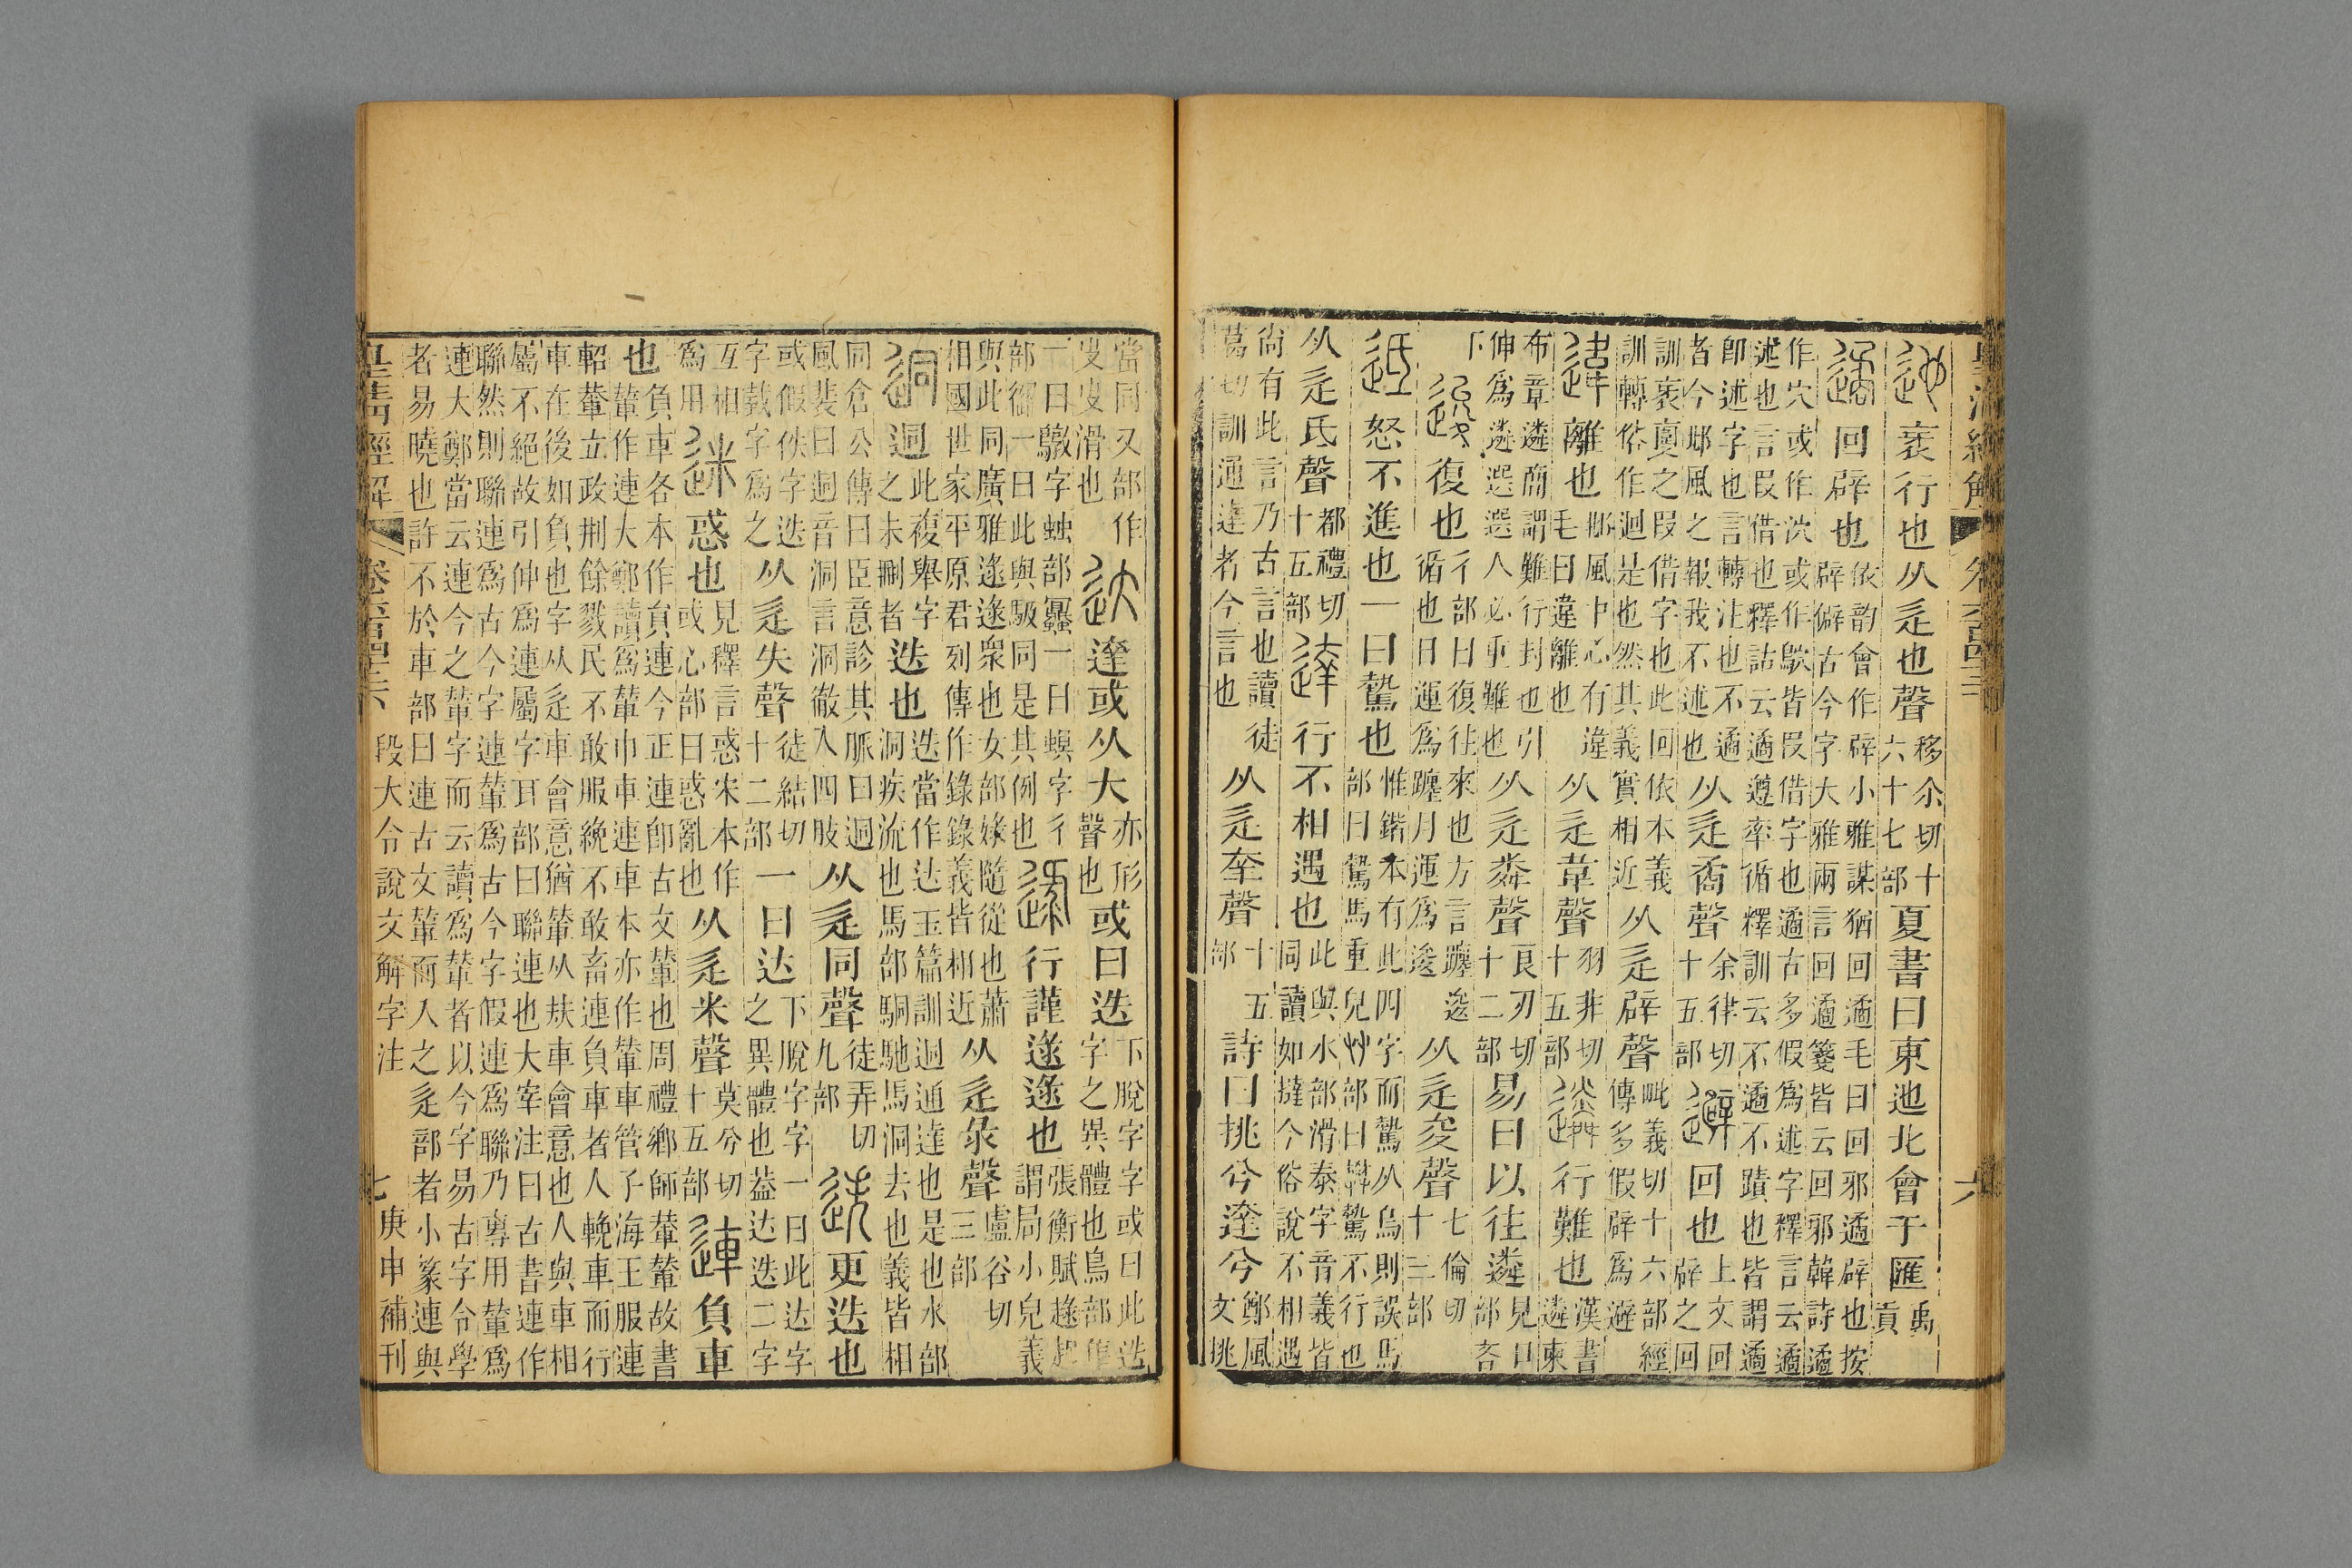 迆衺行也从辵也聲移尒切十六十七部夏書曰東迆北會于匯禹貢
遹回辟也依韵會作辟小雅謀猶回遹毛曰回邪遹辟也按辟僻古今字大雅兩言回遹箋皆云回邪韓詩遹
作穴或作泬或作欥皆叚借字也遹古多假爲述字釋言云遹述也言叚借也釋詁云遹遵率循釋訓云不遹不蹟也皆謂遹
卽述字也言轉注也不遹者今邶風之報我不述也从辵矞聲余律切十五部避回也上文回辟之回
訓衺之叚借字也此回依本義訓轉俗作迴是也然其義實相近从辵辟聲毗義切十六部經傳多假辟爲避
違離也邶風中心有違毛曰違離也从辵韋聲羽非切十五部遴行難也漢書遴柬
布章遴簡謂難行封也引伸爲遴選選人必重難也从辵粦聲良刃切十二部易曰以往遴見口部吝
下逡復也彳部曰復往來也方言躔逡循也日運爲躔月運爲逡从辵夋聲七倫切十三部
怒不進也一曰騺也惟鍇本有此四字而鷙从鳥則誤馬部曰騺馬重皃艸部曰騺不行也
从辵氐聲都禮切十五部達行不相遇也此與水部滑泰字音義皆同讀如撻今俗說不相遇
尚有此言乃古言也讀徒葛切訓通達者今言也从辵羍聲十五部詩曰挑兮達兮鄭風文挑
當同又部作㕜㕜滑也达達或从大亦形聲也或曰迭下脫字字或曰此迭字之異體也鳥部
一曰字䖵部一曰螟字彳部御一曰此與馺同是其例也逯行謹逯逯也張衡賦趢謂局小兒義
與此同廣雅逯逯衆也女部娽隨從也蕭相國世家平原君列傳作錄錄義皆相近从辵彔聲盧谷切三部
迵迵此複舉字之未刪者迭也迭當作达玉篇訓迵通達也是也水部洞疾流也馬部駧馳馬洞去也義皆相
同倉公傳曰臣意診其脈曰迵風裴曰迵音洞言洞徹入四肢从辵同聲徒弄切九部迭更迭也
或假佚字迭字韱字爲之从辵失聲徒結切十二部一曰达下脫字字一曰此达字之異體也葢达迭二字
互相爲用迷惑也見釋言惑宋本作或心部曰惑亂也从辵米聲莫兮切十五部連負車
也負車各本作負連今正連卽古文輦也周禮鄉師輂輦故書輦作連大鄭讀爲輦巾車連車本亦作輦車管子海王服連
軺輦立政荆餘戮民不敢服絻不敢畜連負車者人輓車而行
車在後如負也字从辵車會意猶輦从㚘車會意也人與車相
屬不絕故引伸爲連屬字耳部曰聯連也大宰注曰古書連作
聯然則聯連爲古今字連輦爲古今字假連爲聯乃專用輦爲
連大鄭當云連今之輦字而云讀爲輦者以今字易古字令學
者易曉也許不於車部曰連古文輦而入之辵部者小篆連與
皇清經解
段大令說文解字注
七
庚申補刊